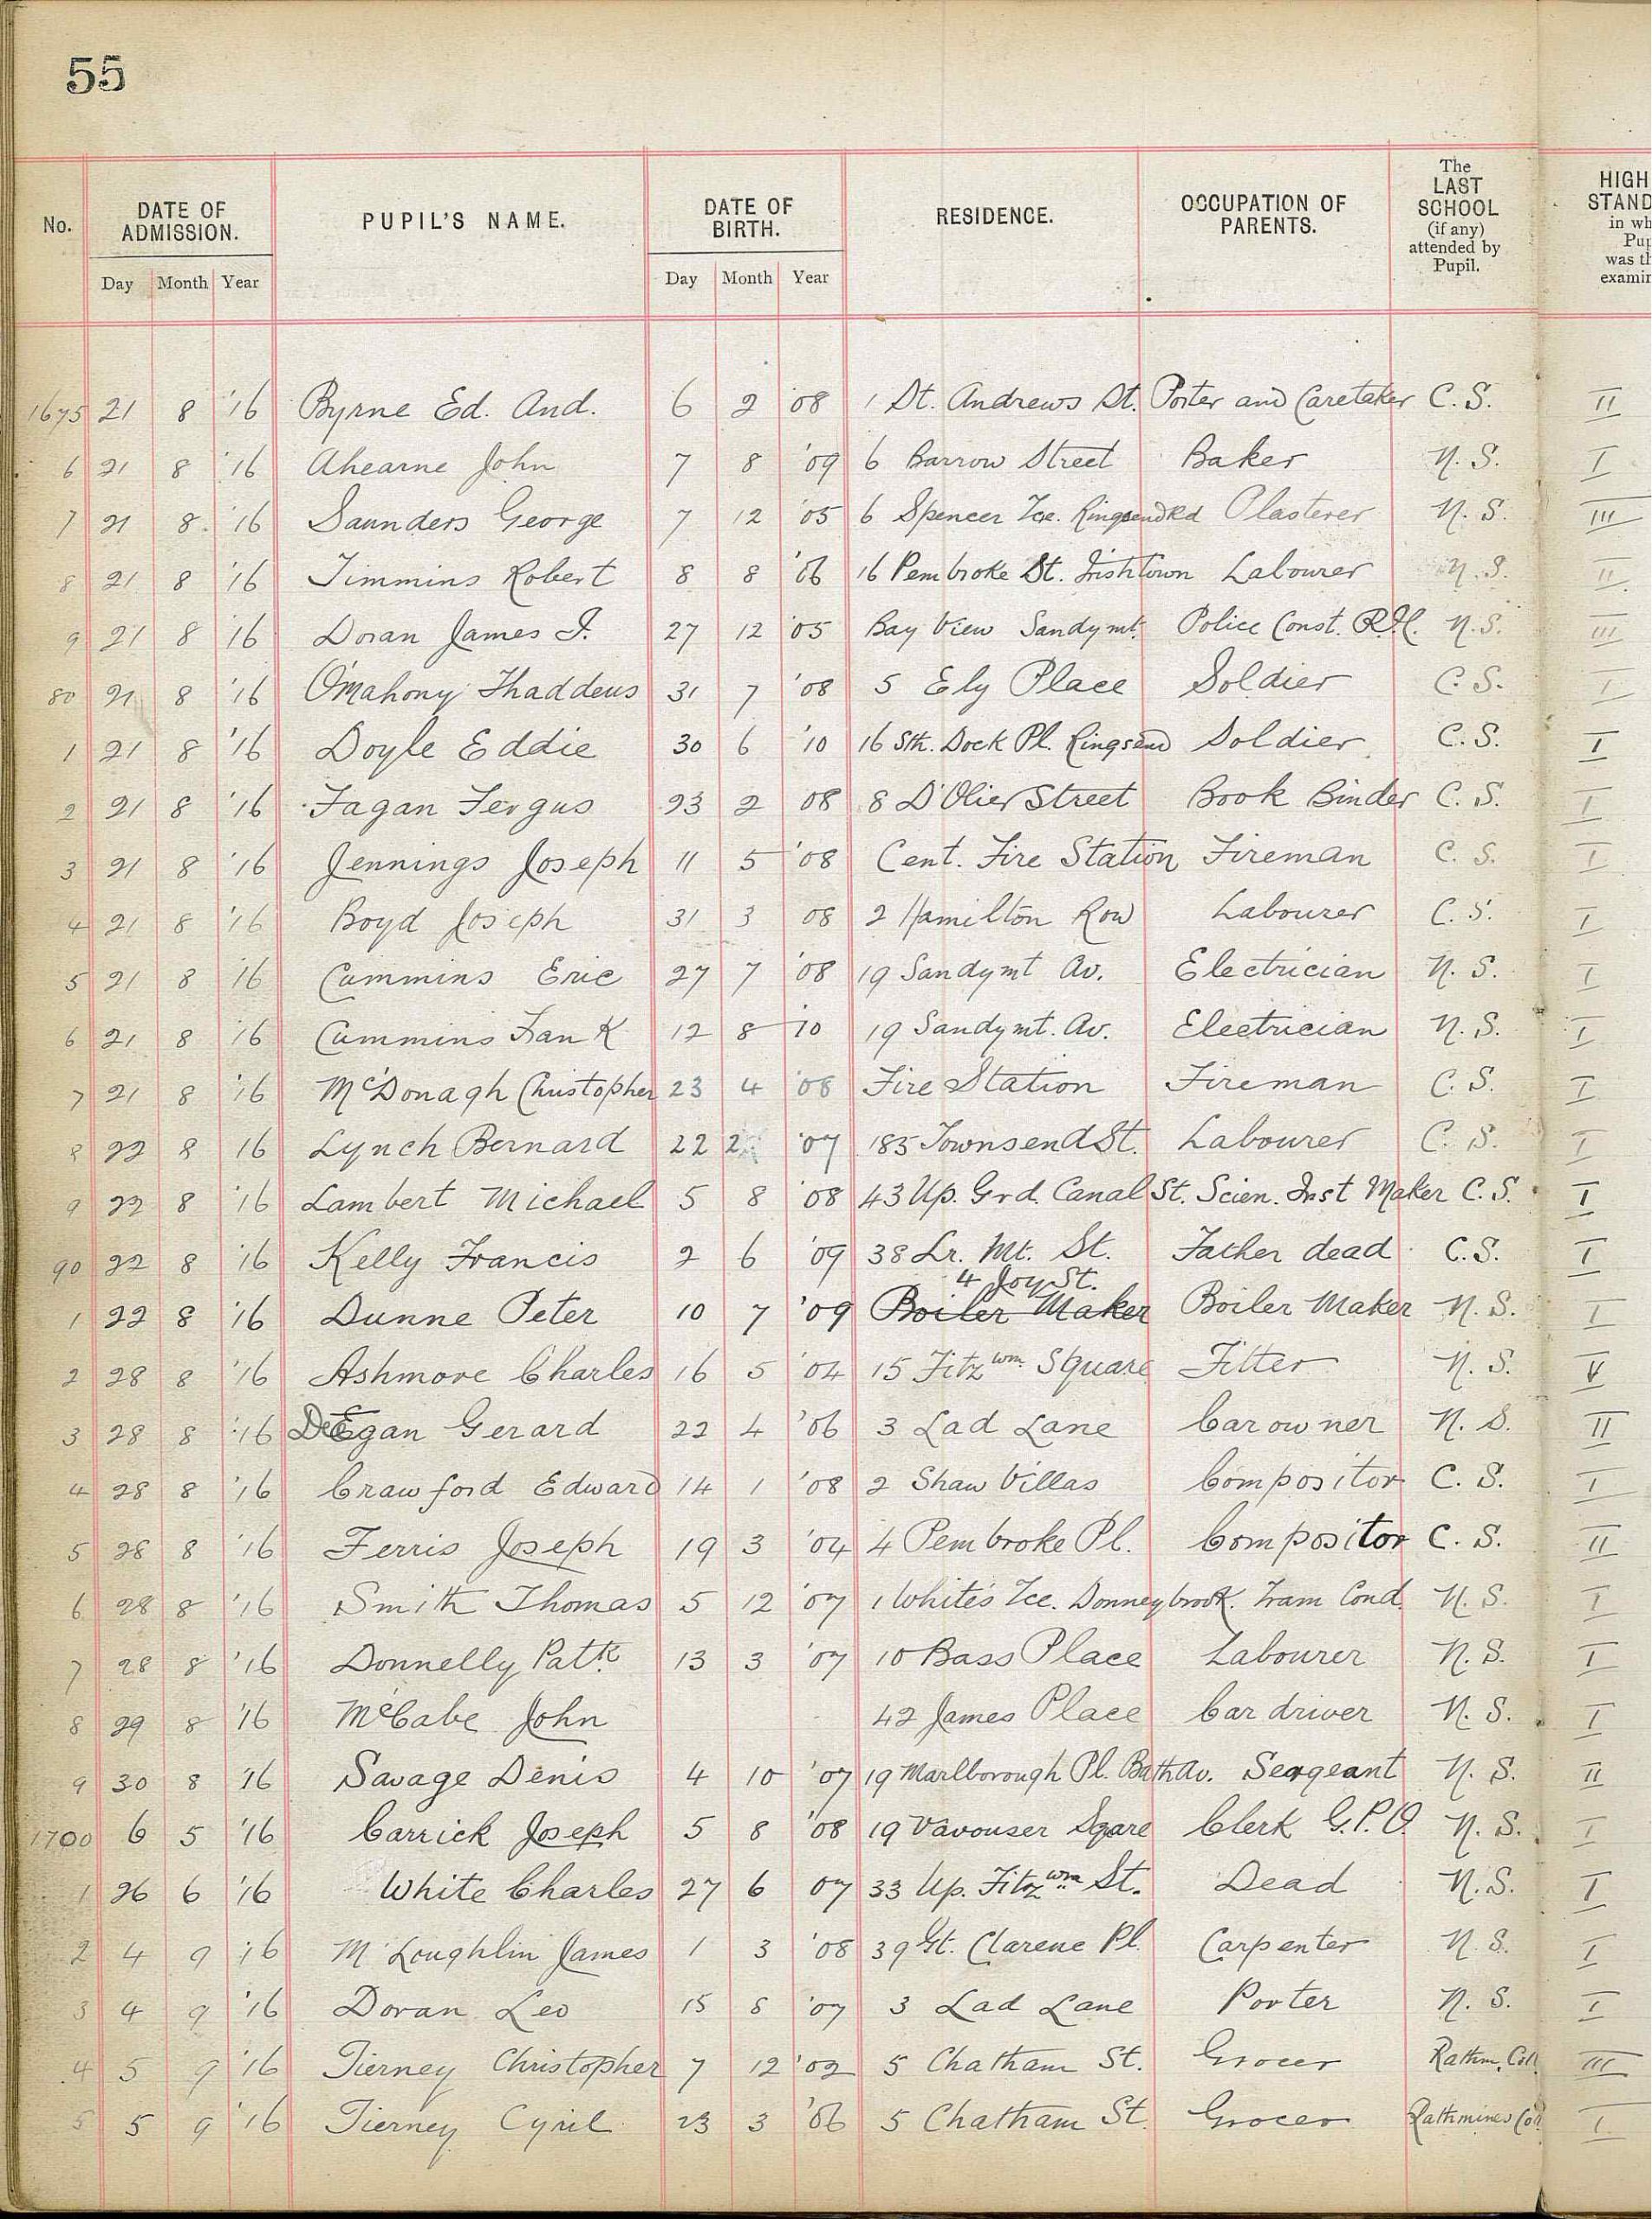 55
No. DATE OF ADMISSION. PUPIL'S NAME. DATE OF BIRTH. RESIDENCE. OCCUPATION OF PARENTS. The LAST SCHOOL (if any) attended by Pupil. HIGH STAND in wh Pup was th examin
Day Month Year Day Month Year
1675 21 8 '16 Byrne Ed. And. 6 2 '08 1 St. Andrews St. Porter and Caretaker C. S. II
6 21 8 '16 Ahearne John 7 8 '09 6 Barrow Street Baker N. S. I
7 21 8 '16 Saunders George 7 12 '05 6 Spencer Tce. Ringsend Rd Plasterer N. S. III
8 21 8 '16 Timmins Robert 8 8 '06 16 Pembroke St. Irishtown Labourer N. S. II
9 21 8 '16 Doran James I. 27 12 '05 Bay View Sandymt. Police Const. N. S. III
80 21 8 '16 O'Mahony Thaddeus 31 7 '08 5 Ely Place Soldier C. S. I
1 21 8 '16 Doyle Eddie 30 6 '10 16 Sth. Dock Pl. Ringsend Soldier C. S. I
2 21 8 '16 Fagan Fergus 23 2 '08 8 D'Olier Street Book Binder C. S. I
3 21 8 '16 Jennings Joseph 11 5 '08 Cent. Fire Station Fireman C. S. I
4 21 8 '16 Boyd Joseph 31 3 08 2 Hamilton Row Labourer C. S. I
5 21 8 '16 Cummins Eric 27 7 '08 19 Sandymt Av. Electrician N. S. I
6 21 8 '16 Cummins Frank 12 8 '10 19 Sandymt. Av. Electrician N. S. I
7 21 8 '16 McDonagh Christopher 23 4 '08 Fire Station Fireman C. S. I
8 22 8 16 Lynch Bernard 22 2 '07 185 Townsend St. Labourer C. S. I
9 22 8 '16 Lambert Michael 5 8 '08 43 Up. Grd. Canal St. Scien. Inst Maker C. S. I
90 22 8 '16 Kelly Francis 2 6 '09 38 Lr. Mt. St. Father dead C. S. I
4 Joy St.
1 22 8 '16 Dunne Peter 10 7 '09 Boiler Maker Boiler Maker N. S. I
2 28 8 '16 Ashmore Charles 16 5 '04 15 Fitzwm. Square Fitter N. S. V
3 28 8 '16 DeEgan Gerard 22 4 '06 3 Lad Lane Car owner N. S. II
4 28 8 '16 Crawford Edward 14 1 '08 2 Shaw Villas Compositor C. S. I
5 28 8 '16 Ferris Joseph 19 3 '04 4 Pembroke Pl. Compositor C. S. II
6 28 8 '16 Smith Thomas 5 12 '07 1 White's Tce. Donneybrook. Tram Cond. N. S. I
7 28 8 '16 Donnelly Patk. 13 3 '07 10 Bass Place Labourer N. S. I
8 29 8 '16 McCabe John 42 James Place Car driver N. S. I
9 30 8 '16 Savage Denis 4 10 '07 19 Marlborough Pl. Bath Av. Seargeant N. S. II
1700 6 5 '16 Carrick Joseph 5 8 '08 19 Vavouser Sqare Clerk G.P.O. N. S. I
1 26 6 '16 White Charles 27 6 07 33 Up. Fitzwm St. Dead N. S. I
2 4 9 '16 McLoughlin James 1 3 '08 39 Gt. Clarene Pl. Carpenter N. S. I
3 4 9 '16 Doran Leo 15 8 '07 3 Lad Lane Porter N. S. I
4 5 9 '16 Tierney Christopher 7 12 '02 5 Chatham St. Grocer Rathm. Coll III
5 5 9 '16 Tierney Cyril 23 3 '06 5 Chatham St Grocer Rathmines Coll I